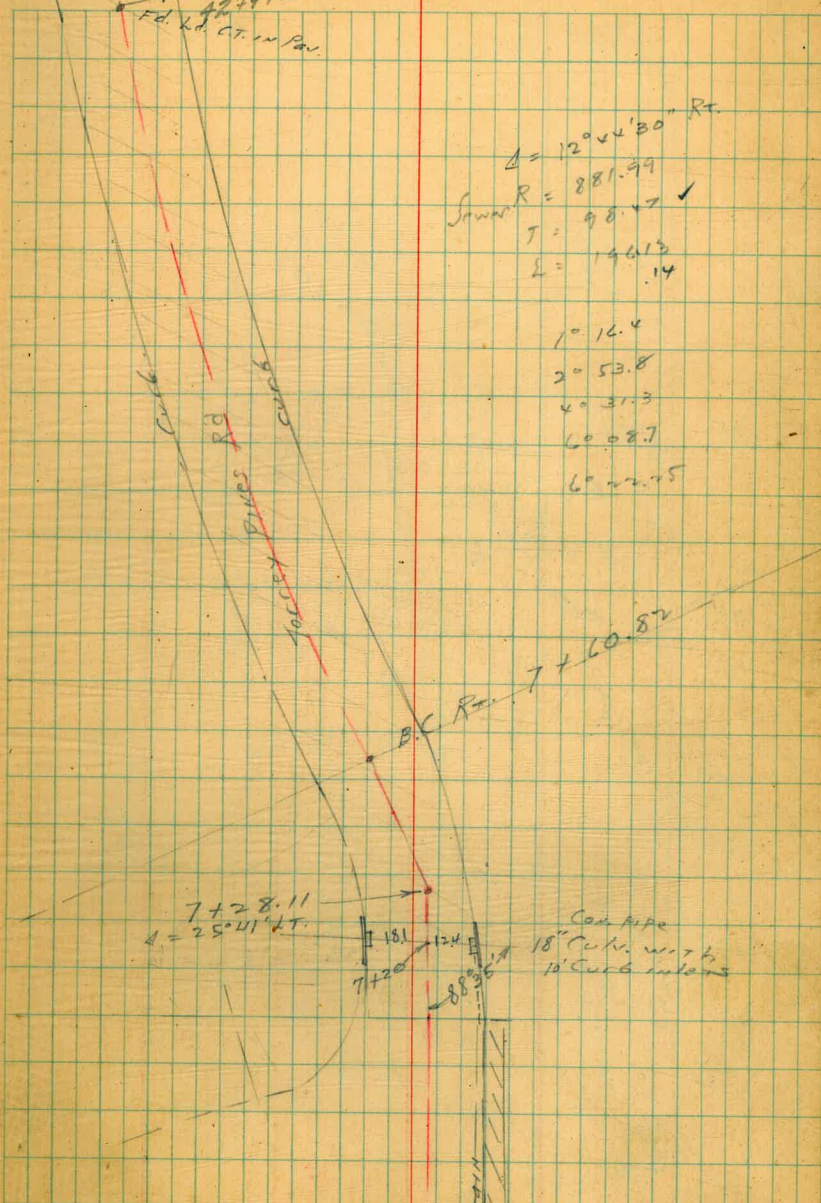 42+9
Fd. Ld. C.T. in Pav.
Δ = 12° 44' 30" Rt.
Sewer R = 881.99
T = 98.47 ✓
L = 196.13
.14
1° 16.4
2° 53.8
4° 31.3
6° 08.7
6° 22.25
Curb
Curb
Torrey Pines Rd
B.C. Rt. 7+60.82
7+28.11
Δ = 25° 41' LT.
18.1
12.4
7+20
88° 36'
Con. pipe
18" Culv. with
10' Curb inlets